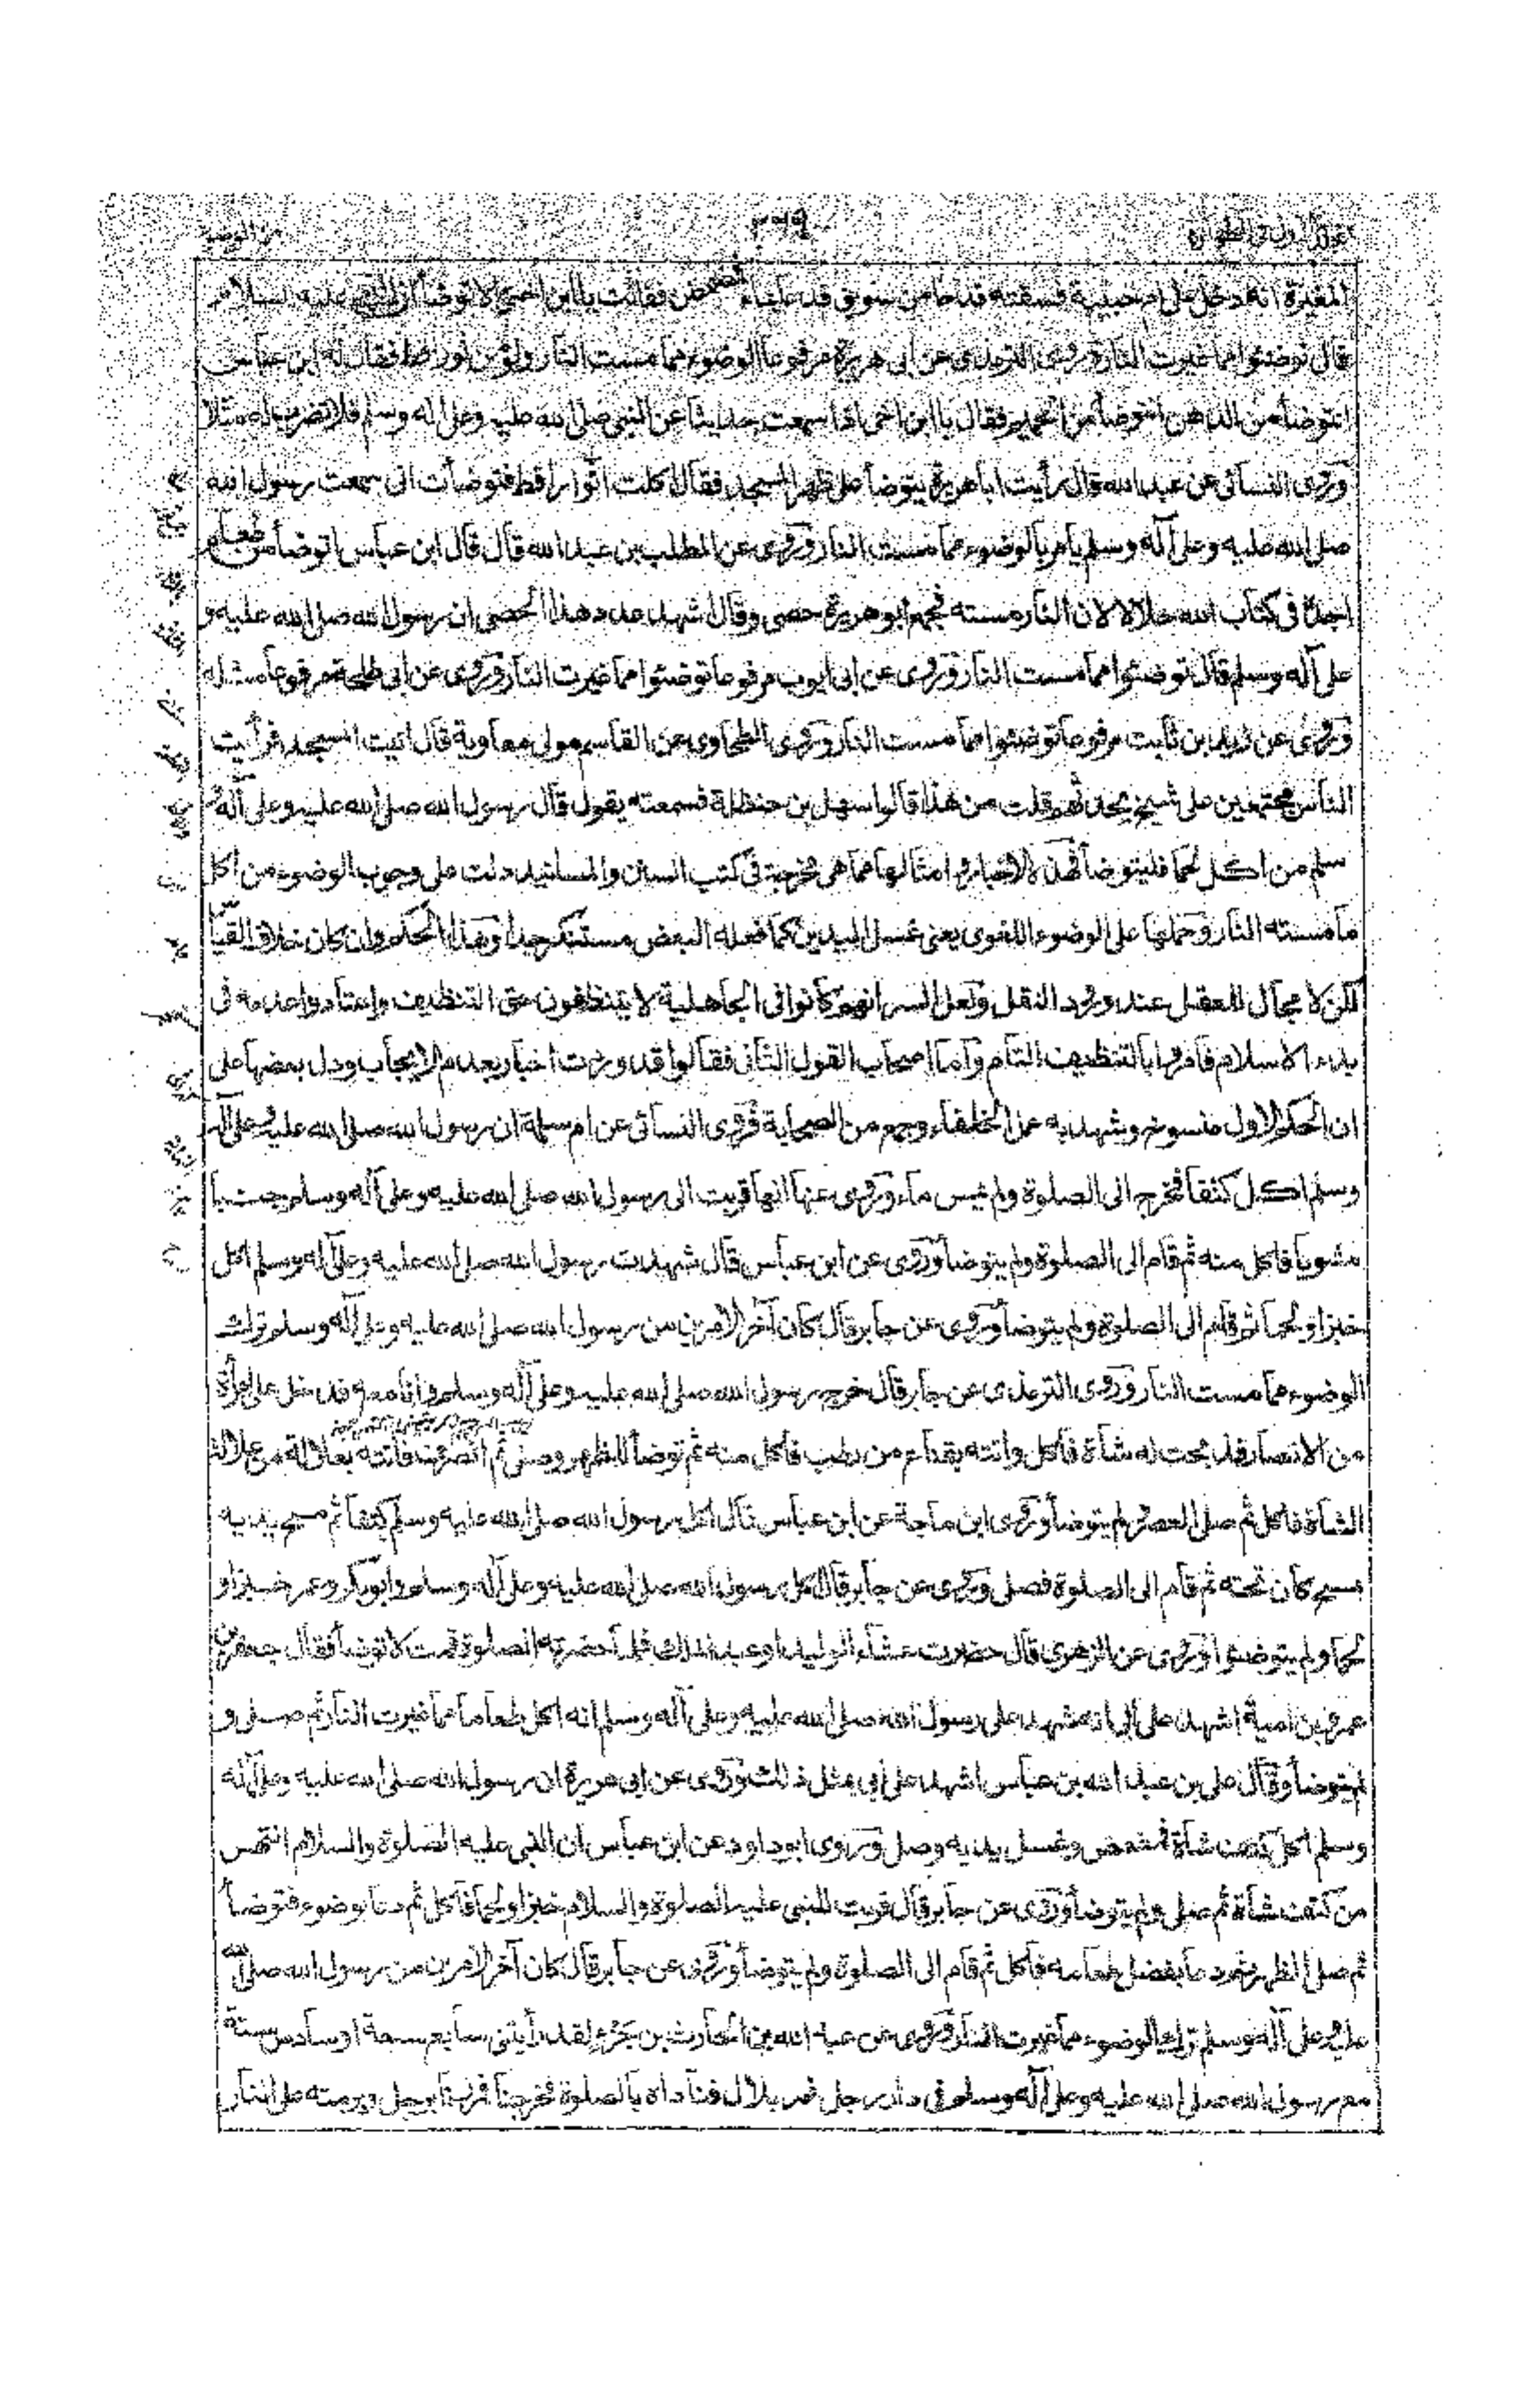 ٢٦٩
المغيرة انه دخل على ام حبيبة فسقته قدحا من سويق فدعا بماء فمضمض فقالت يا ابن اختي الا توضأ ان النبي عليه السلام
قال توضئوا مما غيرت النار وروى الترمذي عن ابي هريرة مرفوعا الوضوء مما مست النار ولو من ثور اقط فقال له ابن عباس
انتوضأ من الدهن انتوضأ من الحميم فقال يا ابن اخي اذا سمعت حديثا عن النبي صلى الله عليه وعلى اله وسلم فلا تضرب له مثلا
وروى النسائي عن عبد الله قال رأيت ابا هريرة يتوضأ على ظهر المسجد فقال اكلت اثوار اقط فتوضأت اني سمعت رسول الله
صلى الله عليه وعلى آله وسلم يأمر بالوضوء مما مست النار وروى عن المطلب بن عبد الله قال قال ابن عباس اتوضأ من طعام
اجده في كتاب الله حلالا لان النار مسته فجمع ابو هريرة حصى وقال اشهد عدد هذا الحصى ان رسول الله صلى الله عليه و
على آله وسلم قال توضئوا مما مست النار وروى عن ابي ايوب مرفوعا توضئوا مما غيرت النار وروى عن ابي طلحة مرفوعا مثله
وروى عن زيد بن ثابت مرفوعا توضئوا مما مست النار وروى الطحاوي عن القاسم مولى معاوية قال اتيت المسجد فرأيت
الناس مجتمعين على شيخ يحدثهم قلت من هذا قالوا سهل بن حنظلة فسمعته يقول قال رسول الله صلى الله عليه وعلى آله و
سلم من اكل لحما فليتوضأ فهذه الاخبار وامثالها مما هي مخرجة في كتب السنن والمسانيد دلت على وجوب الوضوء من اكل
ما مسته النار وحملها على الوضوء اللغوي يعني غسل اليدين كما فعله البعض مستنكر جدا وهذا الحكم وان كان خلاف القياس
لكن لا مجال للعقل عند ورود النقل ولعل السر انهم كانوا في الجاهلية لا يتنظفون حق التنظيف واعتادوا عدمه في
بدء الاسلام فأمروا بالتنظيف التام وأما اصحاب القول الثاني فقالوا قد وردت اخبار بعدم الايجاب ودل بعضها على
ان الحكم الاول منسوخ وشهد به عمل الخلفاء وجمع من الصحابة فروى النسائي عن ام سلمة ان رسول الله صلى الله عليه وعلى آله
وسلم اكل كتفا فخرج الى الصلوة ولم يمس ماء وروى عنها انها قربت الى رسول الله صلى الله عليه وعلى آله وسلم جنبا
مشويا فاكل منه ثم قام الى الصلوة ولم يتوضأ وروى عن ابن عباس قال شهدت رسول الله صلى الله عليه وعلى آله وسلم اكل
خبزا ولحما ثم قام الى الصلوة ولم يتوضأ وروى عن جابر قال كان آخر الامرين من رسول الله صلى الله عليه وعلى آله وسلم ترك
الوضوء مما مست النار وروى الترمذي عن جابر قال خرج رسول الله صلى الله عليه وعلى آله وسلم وانا معه فدخل على امرأة
من الانصار فذبحت له شاة فأكل واتته بقناع من رطب فاكل منه ثم توضأ للظهر وصلى ثم انصرف فاتته بعلالة من علالة
الشاة فاكل ثم صلى العصر ولم يتوضأ وروى ابن ماجة عن ابن عباس قال اكل رسول الله صلى الله عليه وسلم كتفا ثم مسح يديه
بمسح كان تحته ثم قام الى الصلوة فصلى وروى عن جابر قال اكل رسول الله صلى الله عليه وعلى آله وسلم وابو بكر وعمر خبزا و
لحما ولم يتوضئوا وروى عن الزهري قال حضرت عشاء الوليد او عبد الملك فلما حضرته الصلوة قمت لاتوضأ فقال جعفر بن
عمرو بن امية اشهد على ابي انه شهد على رسول الله صلى الله عليه وعلى آله وسلم انه اكل طعاما مما غيرت النار ثم صلى و
لم يتوضأ وقال علي بن عبد الله بن عباس اشهد على ابي بمثل ذلك وروى عن ابي هريرة ان رسول الله صلى الله عليه وعلى آله
وسلم اكل كتف شاة فمضمض وغسل يديه وصلى وروى ابو داود عن ابن عباس ان النبي عليه الصلوة والسلام انتهس
من كتف شاة ثم صلى ولم يتوضأ وروى عن جابر قال قربت للنبي عليه الصلوة والسلام خبزا ولحما فأكل ثم دعا بوضوء فتوضأ
ثم صلى الظهر ثم دعا بفضل طعامه فأكل ثم قام الى الصلوة ولم يتوضأ وروى عن جابر قال كان آخر الامرين من رسول الله صلى الله
عليه وعلى آله وسلم ترك الوضوء مما غيرت النار وروى عن عبد الله بن الحارث بن جزء لقد رأيتني سابع سبعة او سادس ستة
مع رسول الله صلى الله عليه وعلى آله وسلم في دار رجل فمر بلال فناداه بالصلوة فخرجنا فمررنا برجل وبرمته على النار